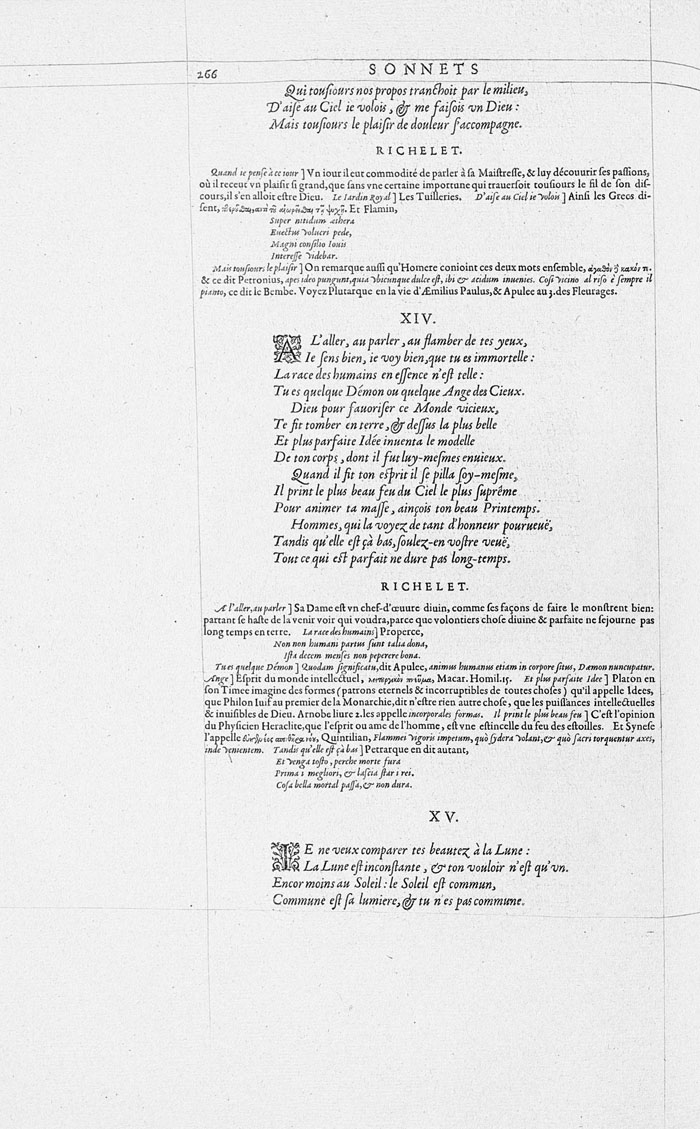 266
SONNETS
Qui touſiours nos propos tranchoit par le milieu,
D'aiſe au Ciel ie volois, & me faiſois vn Dieu :
Mais touſiours le plaiſir de douleur ſ'accompagne.
RICHELET.
Quand ie penſe à ce iour ] Vn iour il eut commodité de parler à ſa Maiſtreſſe, & luy découurir ſes paſſions,
où il receut vn plaiſir ſi grand, que ſans vne certaine importune qui trauerſoit touſiours le fil de ſon diſ-
cours, il s'en alloit eſtre Dieu. Le Iardin Royal ] Les Tuilleries. D'aiſe au Ciel ie volois ] Ainſi les Grecs di-
ſent, Et Flamin,
Super nitidum æthera
Euectus volucri pede,
Magni conſilio Iouis
Intereſſe videbar.
Mais touſiours le plaiſir ] On remarque auſſi qu'Homere conioint ces deux mots enſemble,
& ce dit Petronius, apes ideo pungunt, quia vbicunque dulce eſt, ibi & acidum inuenies. Coſi vicino al riſo è ſempre il
pianto, ce dit le Bembe. Voyez Plutarque en la vie d'Æmilius Paulus, & Apulee au 3. des Fleurages.
XIV.
A L'aller, au parler, au flamber de tes yeux,
Ie ſens bien, ie voy bien, que tu es immortelle :
La race des humains en eſſence n'eſt telle :
Tu es quelque Démon ou quelque Ange des Cieux.
Dieu pour fauoriſer ce Monde vicieux,
Te fit tomber en terre, & deſſus la plus belle
Et plus parfaite Idée inuenta le modelle
De ton corps, dont il fut luy-meſmes enuieux.
Quand il fit ton eſprit il ſe pilla ſoy-meſme,
Il print le plus beau feu du Ciel le plus ſuprême
Pour animer ta maſſe, ainçois ton beau Printemps.
Hommes, qui la voyez de tant d'honneur pourueuë,
Tandis qu'elle eſt çà bas, ſoulez-en voſtre veuë,
Tout ce qui eſt parfait ne dure pas long-temps.
RICHELET.
A l'aller, au parler ] Sa Dame eſt vn chef-d'œuure diuin, comme ſes façons de faire le monſtrent bien:
partant ſe haſte de la venir voir qui voudra, parce que volontiers choſe diuine & parfaite ne ſejourne pas
long temps en terre. La race des humains ] Properce,
Non non humani partus ſunt talia dona,
Iſta decem menſes non peperere bona.
Tu es quelque Démon ] Quodam ſignificatu, dit Apulee, animus humanus etiam in corpore ſitus, Dæmon nuncupatur.
Ange ] Eſprit du monde intellectuel, Macar. Homil. 15. Et plus parfaite Idee ] Platon en
ſon Timee imagine des formes ( patrons eternels & incorruptibles de toutes choſes ) qu'il appelle Idees,
que Philon Iuif au premier de la Monarchie, dit n'eſtre rien autre choſe, que les puiſſances intellectuelles
& inuiſibles de Dieu. Arnobe liure 2. les appelle incorporales formas. Il print le plus beau feu ] C'eſt l'opinion
du Phyſicien Heraclite, que l'eſprit ou ame de l'homme, eſt vne eſtincelle du feu des eſtoilles. Et Syneſe
l'appelle Quintilian, Flammei vigoris impetum, quò ſydera volant, & quò ſacri torquentur axes,
inde venientem. Tandis qu'elle eſt çà bas ] Petrarque en dit autant,
Et venga toſto, perche morte fura
Prima i megliori, & laſcia ſtar i rei.
Coſa bella mortal paſſa, & non dura.
XV.
IE ne veux comparer tes beautez à la Lune :
La Lune eſt inconſtante, & ton vouloir n'eſt qu'vn.
Encor moins au Soleil : le Soleil eſt commun,
Commune eſt ſa lumiere, & tu n'es pas commune.